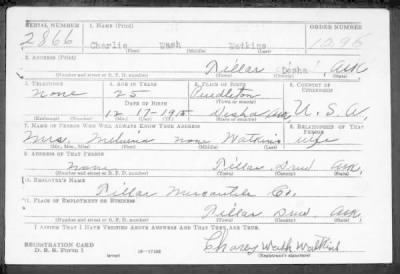 SERIAL NUMBER 1. NAME (Print) ORDER NUMBER
2866 Charlie Wash Watkins 1096
(First) (Middle) (Last)
2. ADDRESS (Print)
Tillar Desha Ark
(Number and street or R. F. D. number) (Town) (County) (State)
3. TELEPHONE 4. AGE IN YEARS 5. PLACE OF BIRTH 6. COUNTRY OF CITIZENSHIP
None 25 Pendleton
DATE OF BIRTH (Town or county)
12 17-1915 Desha Ark U. S. A.
(Exchange) (Number) (Mo.) (Day) (Yr.) (State or country)
7. NAME OF PERSON WHO WILL ALWAYS KNOW YOUR ADDRESS 8. RELATIONSHIP OF THAT PERSON
Mrs none Watkins wife
(Mr., Mrs., Miss) (First) (Middle) (Last)
9. ADDRESS OF THAT PERSON
none Tillar Drew Ark.
(Number and street or R. F. D. number) (Town) (County) (State)
10. EMPLOYER'S NAME
Tillar Mercantile Co.
11. PLACE OF EMPLOYMENT OR BUSINESS
Tillar Drew Ark
(Number and street or R. F. D. number) (Town) (County) (State)
I AFFIRM THAT I HAVE VERIFIED ABOVE ANSWERS AND THAT THEY ARE TRUE.
REGISTRATION CARD
D. S. S. FORM 1 (over) 16-17105
Wash Watkins
(Registrant's signature)